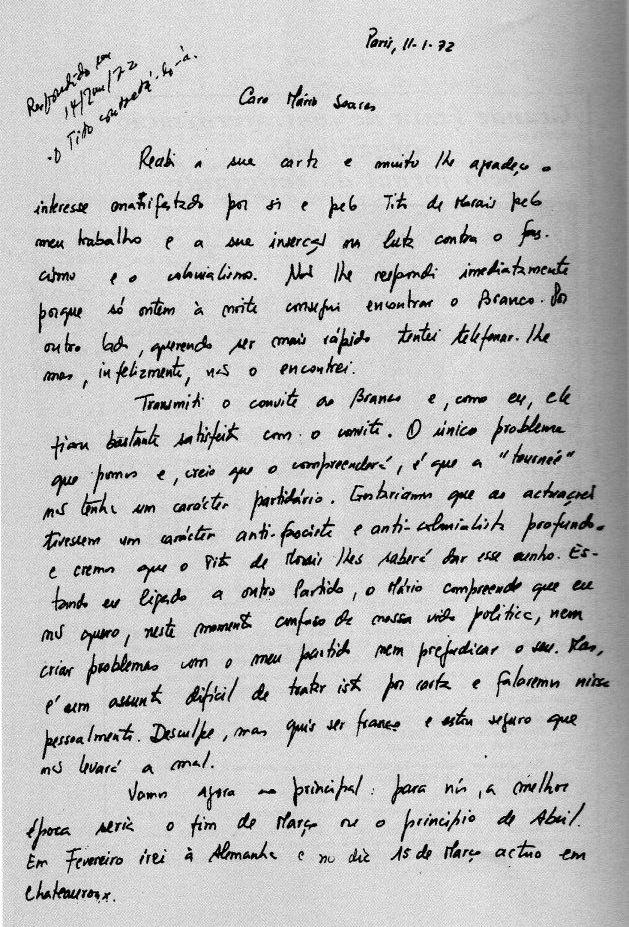 Paris, 11-1-72
Respondido em
14/Jan/72
O Tito contactá-lo-á.
Caro Mário Soares
Recebi a sua carta e muito lhe agradeço o
interesse manifestado por si e pelo Tito de Morais pelo
meu trabalho e a sua inserção na luta contra o fas-
cismo e o colonialismo. Não lhe respondi imediatamente
porque só ontem à noite consegui encontrar o Branco. Por
outro lado, querendo ser mais rápido tentei telefonar-lhe
mas, infelizmente, não o encontrei.
Transmiti o convite ao Branco e, como eu, ele
ficou bastante satisfeito com o convite. O único problema
que pomos e, creio que o compreenderá, é que a "tournée"
não tenha um carácter partidário. Gostaríamos que as actuações
tivessem um carácter anti-fascista e anti-colonialista profundo
e cremos que o Tito de Morais lhes saberá dar esse cunho. Es-
tando eu ligado a outro Partido, o Mário compreende que eu
não quero, neste momento confuso de nossa vida política, nem
criar problemas com o meu partido nem prejudicar o seu. Mas,
é um assunto difícil de tratar isto por carta e falaremos nisso
pessoalmente. Desculpe, mas quis ser franco e estou seguro que
não levará a mal.
Vamos agora ao principal: para nós, a melhor
época seria o fim de Março ou o princípio de Abril.
Em Fevereiro irei à Alemanha e no dia 15 de Março actuo em
Chateauroux.